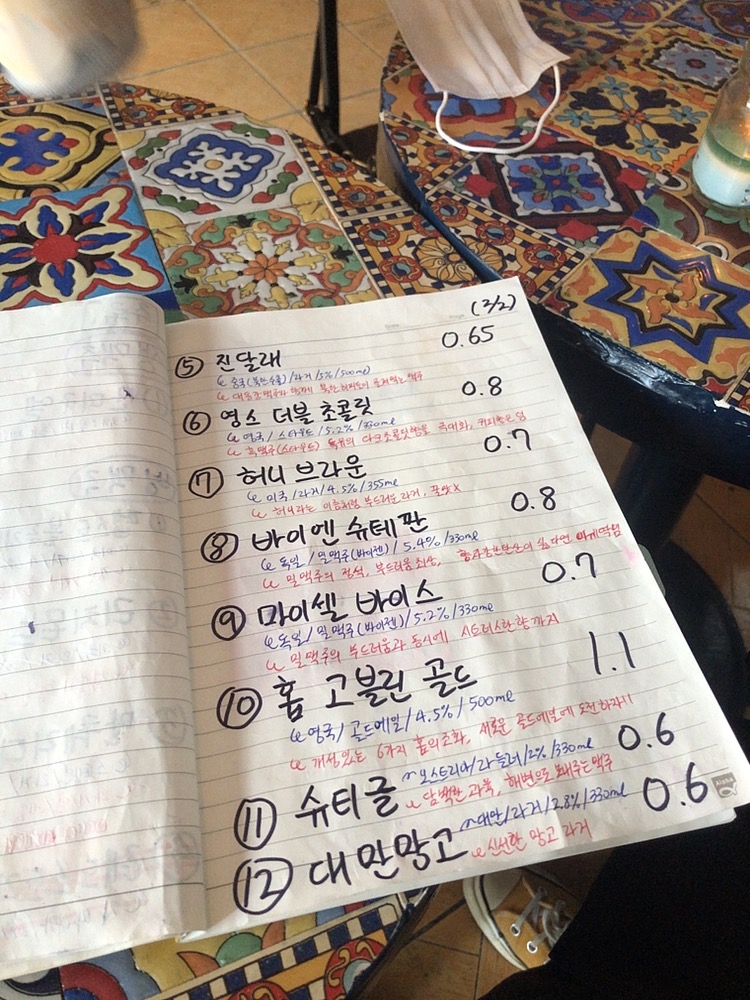 (2/2)
⑤ 진달래 0.65
↳ 중국(북한수출)/라거/5%/500ml
↳ 대동강맥주와 함께 북한 맥주
⑥ 영스 더블 초콜릿 0.8
↳ 영국/스타우트/5.2%/330ml
↳ 흑맥주(스타우트) 특유의 다크초콜릿향을 극대화, 커피한은 덤
⑦ 허니 브라운 0.7
↳ 미국/라거/4.5%/355ml
↳ 허니라는 이름처럼 부드러운 라거, 꿀맛X
⑧ 바이엔슈테판 0.8
↳ 독일/밀맥주(바이젠)/5.4%/330ml
↳ 밀맥주의 정석, 부드러움 최상, 탄산이 싫다면 이게 딱임
⑨ 마이셀 바이스 0.7
↳ 독일/밀맥주(바이젠)/5.2%/330ml
↳ 밀맥주의 부드러움과 동시에 시트러스한 향까지
⑩ 홉 고블린 골드 1.1
↳ 영국/골드에일/4.5%/500ml
↳ 개성있는 6가지 홉의 조화, 새로운 골드에일에 도전하자!!
⑪ 슈티글 ~오스트리아/라들러/2%/330ml 0.6
↳ 담백한 과육, 해변으로 보내주는 맥주
⑫ 대만망고 ~대만/라거/2.8%/330ml 0.6
↳ 신선한 망고 라거